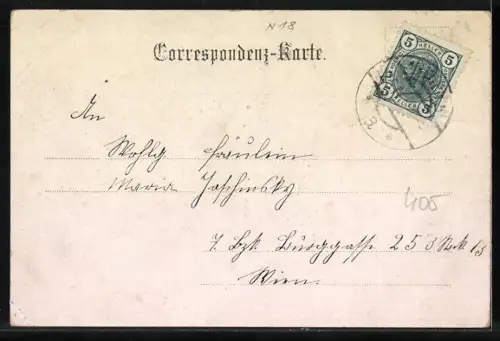 N 18
Correspondenz-Karte.
5 HELLER 5
5 HELLER 5
An
Wohlg Fräulein
Maria Jaschinsky
405
7. Bzk Burggasse 253
Wien